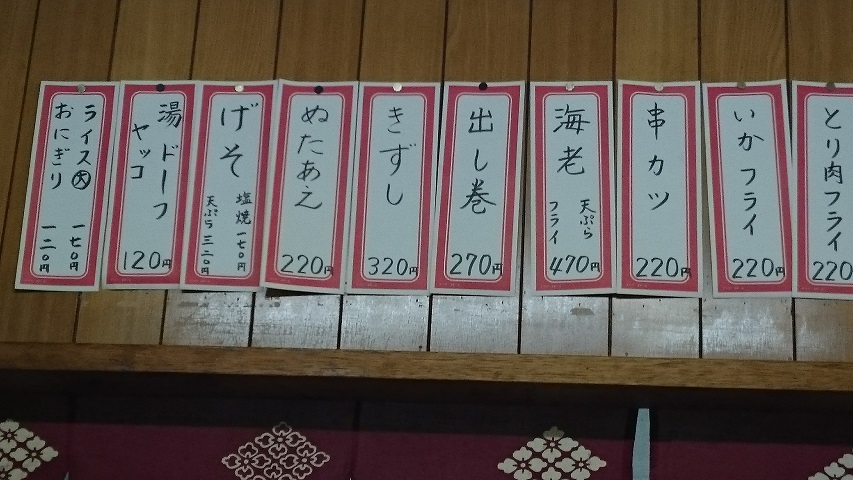 とり肉フライ
220
いかフライ
220円
串カツ
220円
海老
天ぷら
フライ
470円
出し巻
270円
きずし
320円
ぬたあえ
220円
げそ
塩焼 一七〇円
天ぷら 三二〇円
湯ドーフ
ヤッコ
120円
ライス㊛大 一七〇円
おにぎり 一二〇円